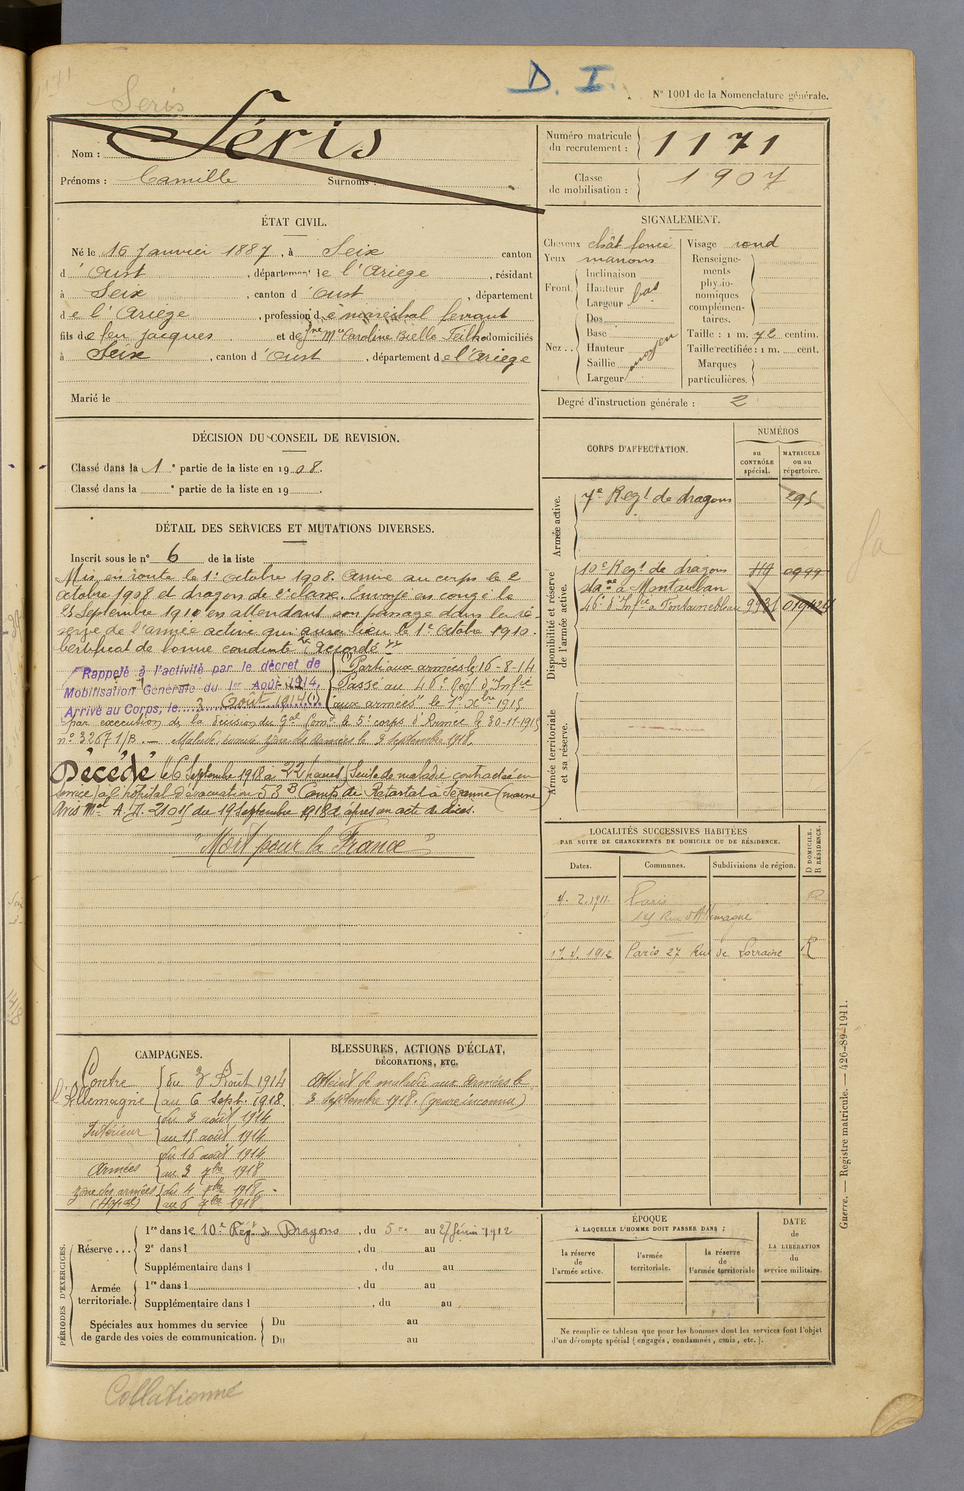 Seris
D. I.
N° 1001 de la Nomenclature générale.
Nom : Séris
Prénoms : Camille Surnoms :
Numéro matricule du recrutement : 1171
Classe de mobilisation : 1907
ÉTAT CIVIL.
Né le 16 Janvier 1887, à Seix canton
d'Oust, département de l'Ariège, résidant
à Seix, canton d'Oust, département
de l'Ariège, profession de maréchal ferrant
fils de feu Jacques et de Caroline domiciliés
à Seix, canton d'Oust, département de l'Ariège
Marié le
SIGNALEMENT.
Cheveux chât foncé
Yeux marrons
Front. Inclinaison
Hauteur bas
Largeur
Nez.. Dos
Base
Hauteur moyen
Saillie
Largeur
Visage rond
Renseignements physionomiques complémentaires.
Taille : 1 m. 72 centim.
Taille rectifiée : 1 m. cent.
Marques particulières.
Degré d'instruction générale : 2
DÉCISION DU CONSEIL DE REVISION.
Classé dans la 1e partie de la liste en 1908.
Classé dans la e partie de la liste en 19 .
DÉTAIL DES SERVICES ET MUTATIONS DIVERSES.
Inscrit sous le n° 6 de la liste
Mis en route le 1er octobre 1908. Arrivé au corps le 2
octobre 1908 et dragon de 2e classe. Envoyé en congé le
25 Septembre 1910 en attendant son passage dans la ré-
serve de l'armée active qui aura lieu le 1er Octobre 1910.
Certificat de bonne conduite Accordé
Rappelé à l'activité par le décret de
Mobilisation Générale du 1er Août 1914.
Arrivé au Corps, le 3 Août 1914 (1)
(1) Parti aux armées le 16-8-14
Passé au 46e Regt d'Infie
aux armées le 1er Xbre 1915
par exécution de la décision du Gal Comt le 5e corps d'Armée le 30-11-1915
n° 3267 1/B. — Malade, évacué zone des armées le 3 septembre 1918.
Décédé le 6 Septembre 1918 à 22 heures (Suite de maladie contractée en
service) à l'hôpital d'évacuation 53 B Camp de Retortat à Sézanne (Marne)
Avis Mel A.D. du 19 Septembre 1918 d'après un acte de décès.
"Mort pour la France"
CORPS D'AFFECTATION.
NUMÉROS
au CONTRÔLE spécial.
MATRICULE ou au répertoire.
Armée active.
7e Regt de dragons 295
Disponibilité et réserve de l'armée active.
10e Regt de dragons
à Montauban
46e d'Infie à Fontainebleau
Armée territoriale et sa réserve.
LOCALITÉS SUCCESSIVES HABITÉES
PAR SUITE DE CHANGEMENTS DE DOMICILE OU DE RÉSIDENCE.
Dates. Communes. Subdivisions de région. D DOMICILE. R RÉSIDENCE.
4. 2. 1911. Paris R
Rue d'Allemagne
17. 4. 1912 Paris 27 Rue de Lorraine R
CAMPAGNES.
Contre l'Allemagne
du 3 Août 1914
au 6 Sept. 1918.
Intérieur
du 3 août 1914
au 15 août 1914
Armées
du 16 août 1914
au 3 7bre 1918
Zone des armées (Hôpital)
du 4 7bre 1918
au 6 7bre 1918
BLESSURES, ACTIONS D'ÉCLAT,
DÉCORATIONS, ETC.
Atteint de maladie aux armées le
3 Septembre 1918. (genre inconnu)
PÉRIODES D'EXERCICES.
Réserve...
1re dans le 10e Rég. de Dragons, du 5 au 27 février 1912
2e dans l , du au
Supplémentaire dans l , du au
Armée territoriale.
1re dans l , du au
Supplémentaire dans l , du au
Spéciales aux hommes du service de garde des voies de communication.
Du au
Du au
ÉPOQUE
À LAQUELLE L'HOMME DOIT PASSER DANS :
la réserve de l'armée active.
l'armée territoriale.
la réserve de l'armée territoriale
DATE
DE LA LIBÉRATION
du service militaire.
Ne remplir ce tableau que pour les hommes dont les services font l'objet
d'un décompte spécial (engagés, condamnés, omis, etc.).
Guerre. — Registre matricule. — 426-89-1911.
Collationné